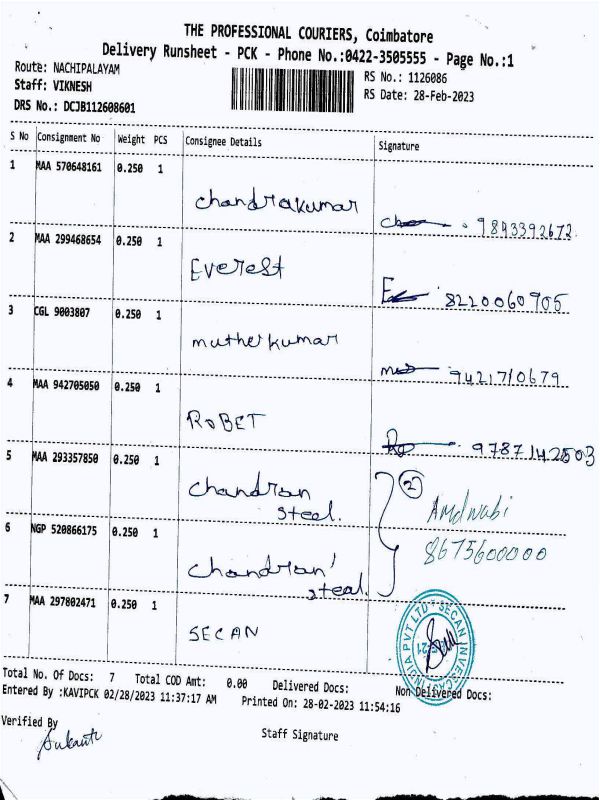 THE PROFESSIONAL COURIERS, Coimbatore
Delivery Runsheet - PCK - Phone No.:0422-3505555 - Page No.:1
Route: NACHIPALAYAM
RS No.: 1126086
Staff: VIKNESH
RS Date: 28-Feb-2023
DRS No.: DCJB112608601
S No Consignment No Weight PCS Consignee Details Signature
1 MAA 570648161 0.250 1
chandrakumar
9893392672
2 MAA 299468654 0.250 1
Everest
8220060905
3 CGL 9003807 0.250 1
mutherkumar
9421710679
4 MAA 942705050 0.250 1
RoBET
9787142503
5 MAA 293357850 0.250 1
chandran
steel.
2
8675600000
6 NGP 520866175 0.250 1
chandran'
steel.
7 MAA 297802471 0.250 1
SECAN
SECAN INVESCAST INDIA PVT LTD
Total No. Of Docs: 7 Total COD Amt: 0.00 Delivered Docs: Non Delivered Docs:
Entered By :KAVIPCK 02/28/2023 11:37:17 AM Printed On: 28-02-2023 11:54:16
Verified By
Staff Signature